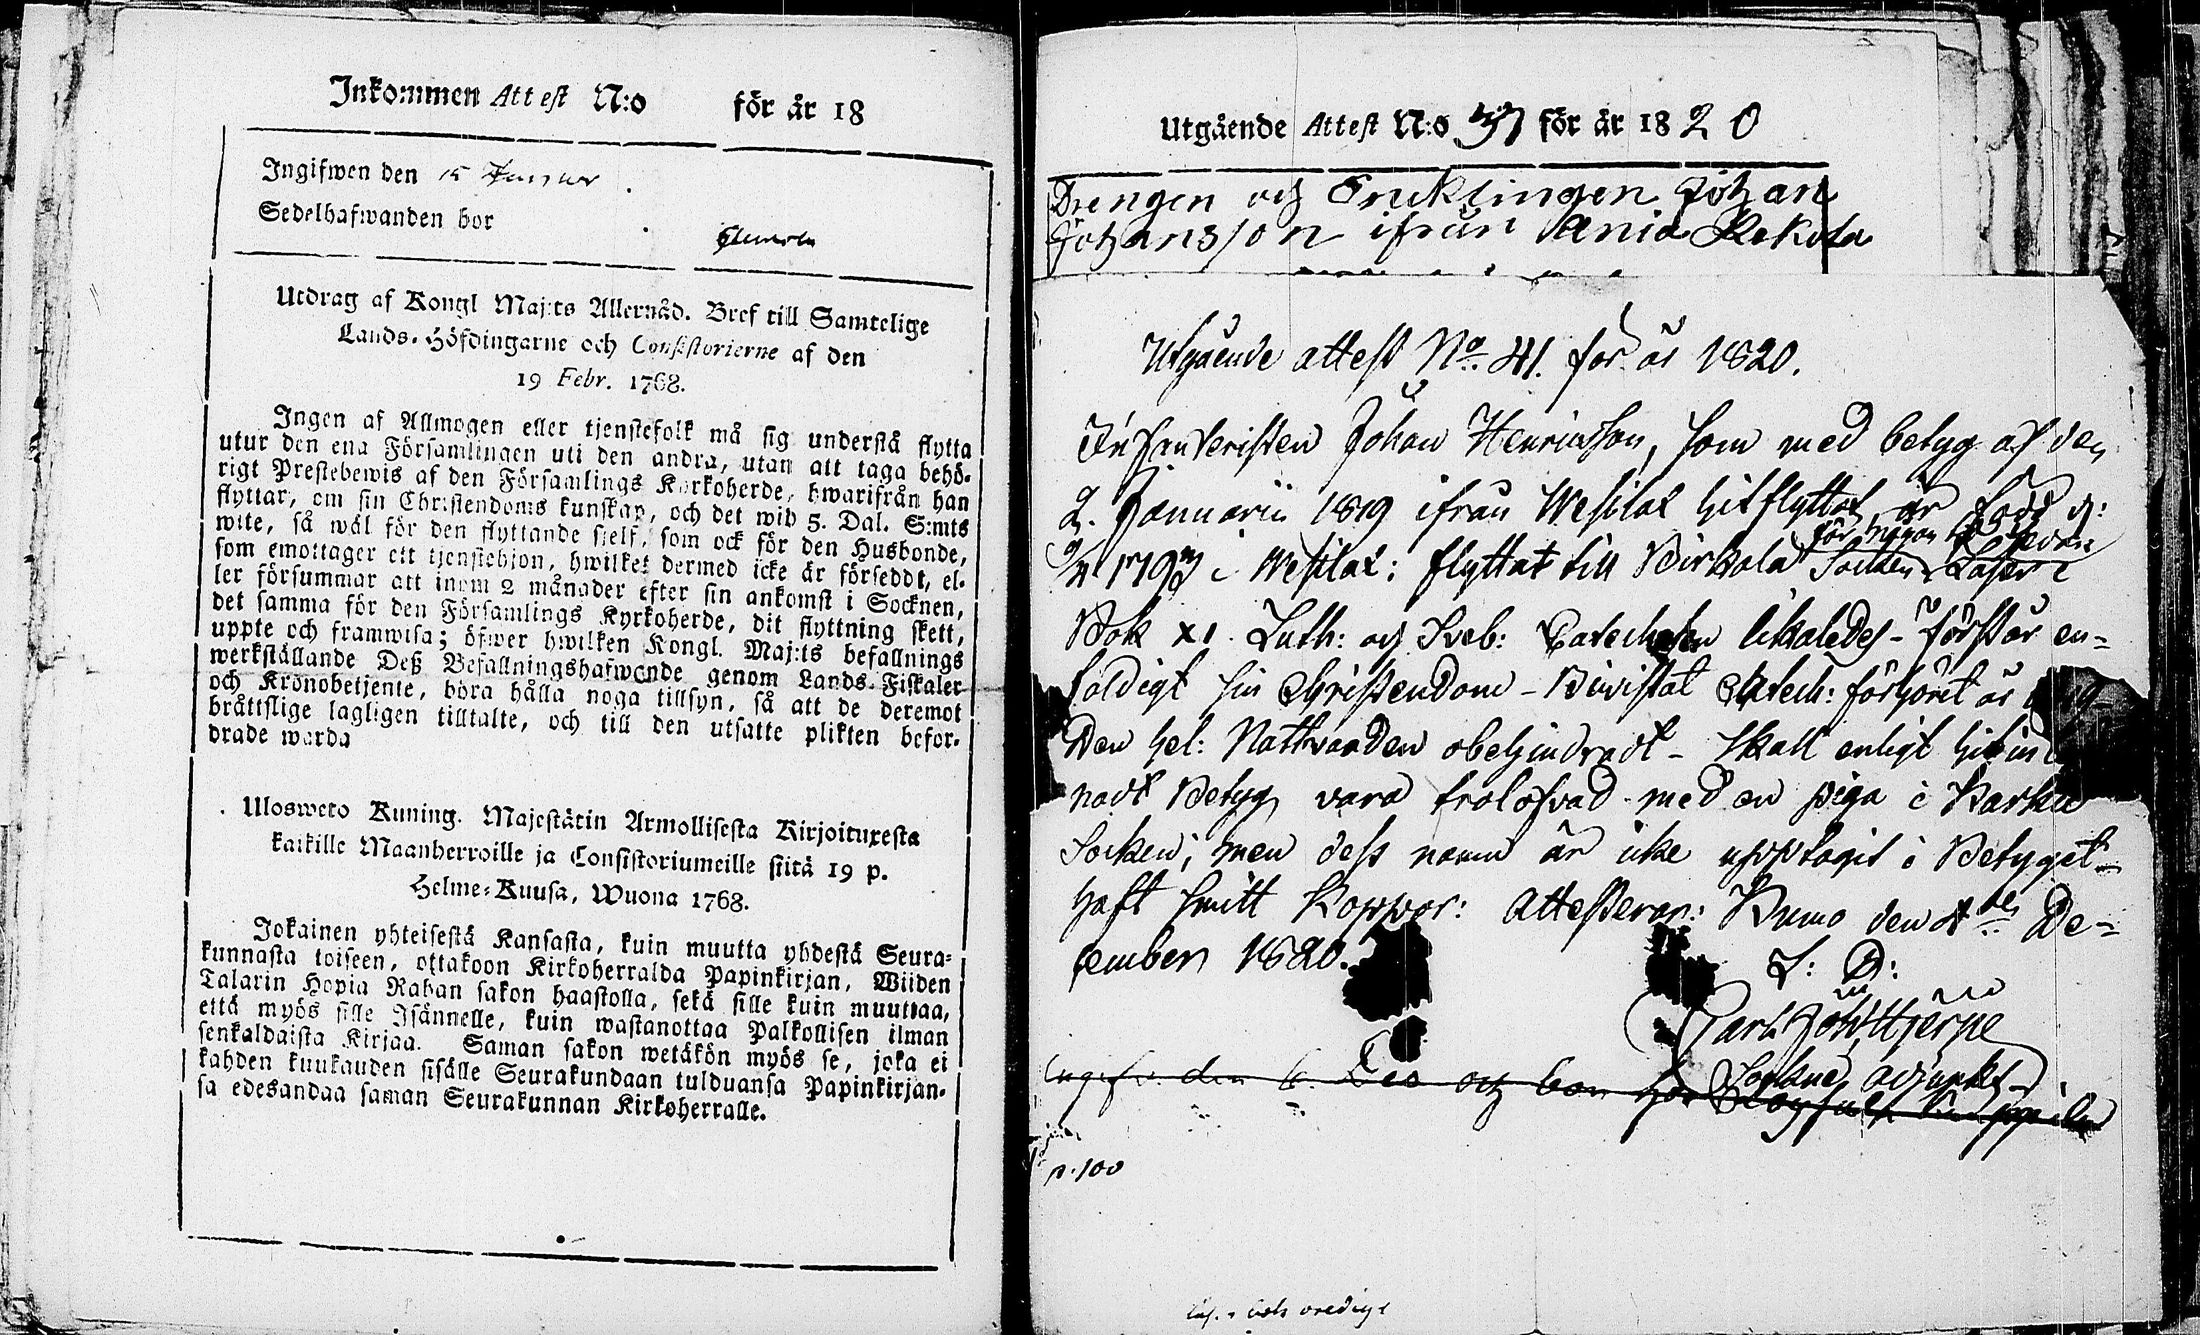 Inkommen Attest N:o för år 18
Ingifwen den 15 Januar
Sedelhafwanden bor
Utdrag af Kongl Maj:ts Allernåd. Bref till Samtelige
Lands-Höfdingarne och Consistorierne af den
19 Febr. 1768.
Ingen af Allmogen eller tjenstefolk må sig understå flytta
utur den ena Församlingen uti den andra, utan att taga behö-
rigt Prestebewis af den Församlings Kyrkoherde, hwarifrån han
flyttar, om sin Christendoms kunskap, och det wid 5. Dal. S:mts
wite, så wäl för den flyttande sjelf, som ock för den Husbonde,
som emottager ett tjenstehjon, hwilket dermed icke är förseddt, el-
ler försummar att inom 2 månader efter sin ankomst i Socknen,
det samma för den Församlings Kyrkoherde, dit flyttning skett,
uppte och framwisa; öfwer hwilken Kongl. Maj:ts befallnings
werkställande Deß Befallningshafwande genom Lands-Fiskaler
och Kronobetjente, böra hålla noga tillsyn, så att de deremot
bråttslige lagligen tilltalte, och till den utsatte plikten befor-
drade warda
Ulosweto Kuning. Majestätin Armollisesta Kirjoituxesta
kaikille Maanherroille ja Consistoriumeille siitä 19 p.
Helme-Kuusa, Wuona 1768.
Jokainen yhteisestä Kansasta, kuin muutta yhdestä Seura-
kunnasta toiseen, ottakoon Kirkoherralda Papinkirjan, Wiiden
Talarin Hopia Rahan sakon haastolla, sekä sille kuin muuttaa,
että myös sille Isännelle, kuin wastanottaa Palkollisen ilman
senkaldaista Kirjaa. Saman sakon wetäkön myös se, joka ei
kahden kuukauden sisälle Seurakundaan tulduansa Papinkirjan-
sa edesandaa saman Seurakunnan Kirkoherralle.
Utgående Attest N:o 37 för år 1820
Drengen och Enklingen Johan
Johansson ifrån Ania Rekola
Utgående attest No. 41. för år 1820.
Infanteristen Johan Henricsson, som med betyg af den
2. Januarii 1819 ifrån Wesilax hitflyttat är född d:
för någon tid sedan
1797 i Wesilax: flyttat till Birkala Socken - Läser i
Bok x1. Luth: och Sveb: Catechesen likaledes - Förstår en-
faldigt sin Christendom - Bivistat Catech: förhöret år
Den hel: Nattvarden obehindradt - Skall enligt hit in
nadt Betyg vara trolofvad med en piga i Karku
Socken; men dess namn är icke upptagit i Betyget -
haft smitt Koppor: Attesterar: Kumo den De-
cember 1820.
L: D:
Carl Joh Hjerpe
Sockne Adjunkt
Ingifv. den 6. Dec och bor hos
p. 100